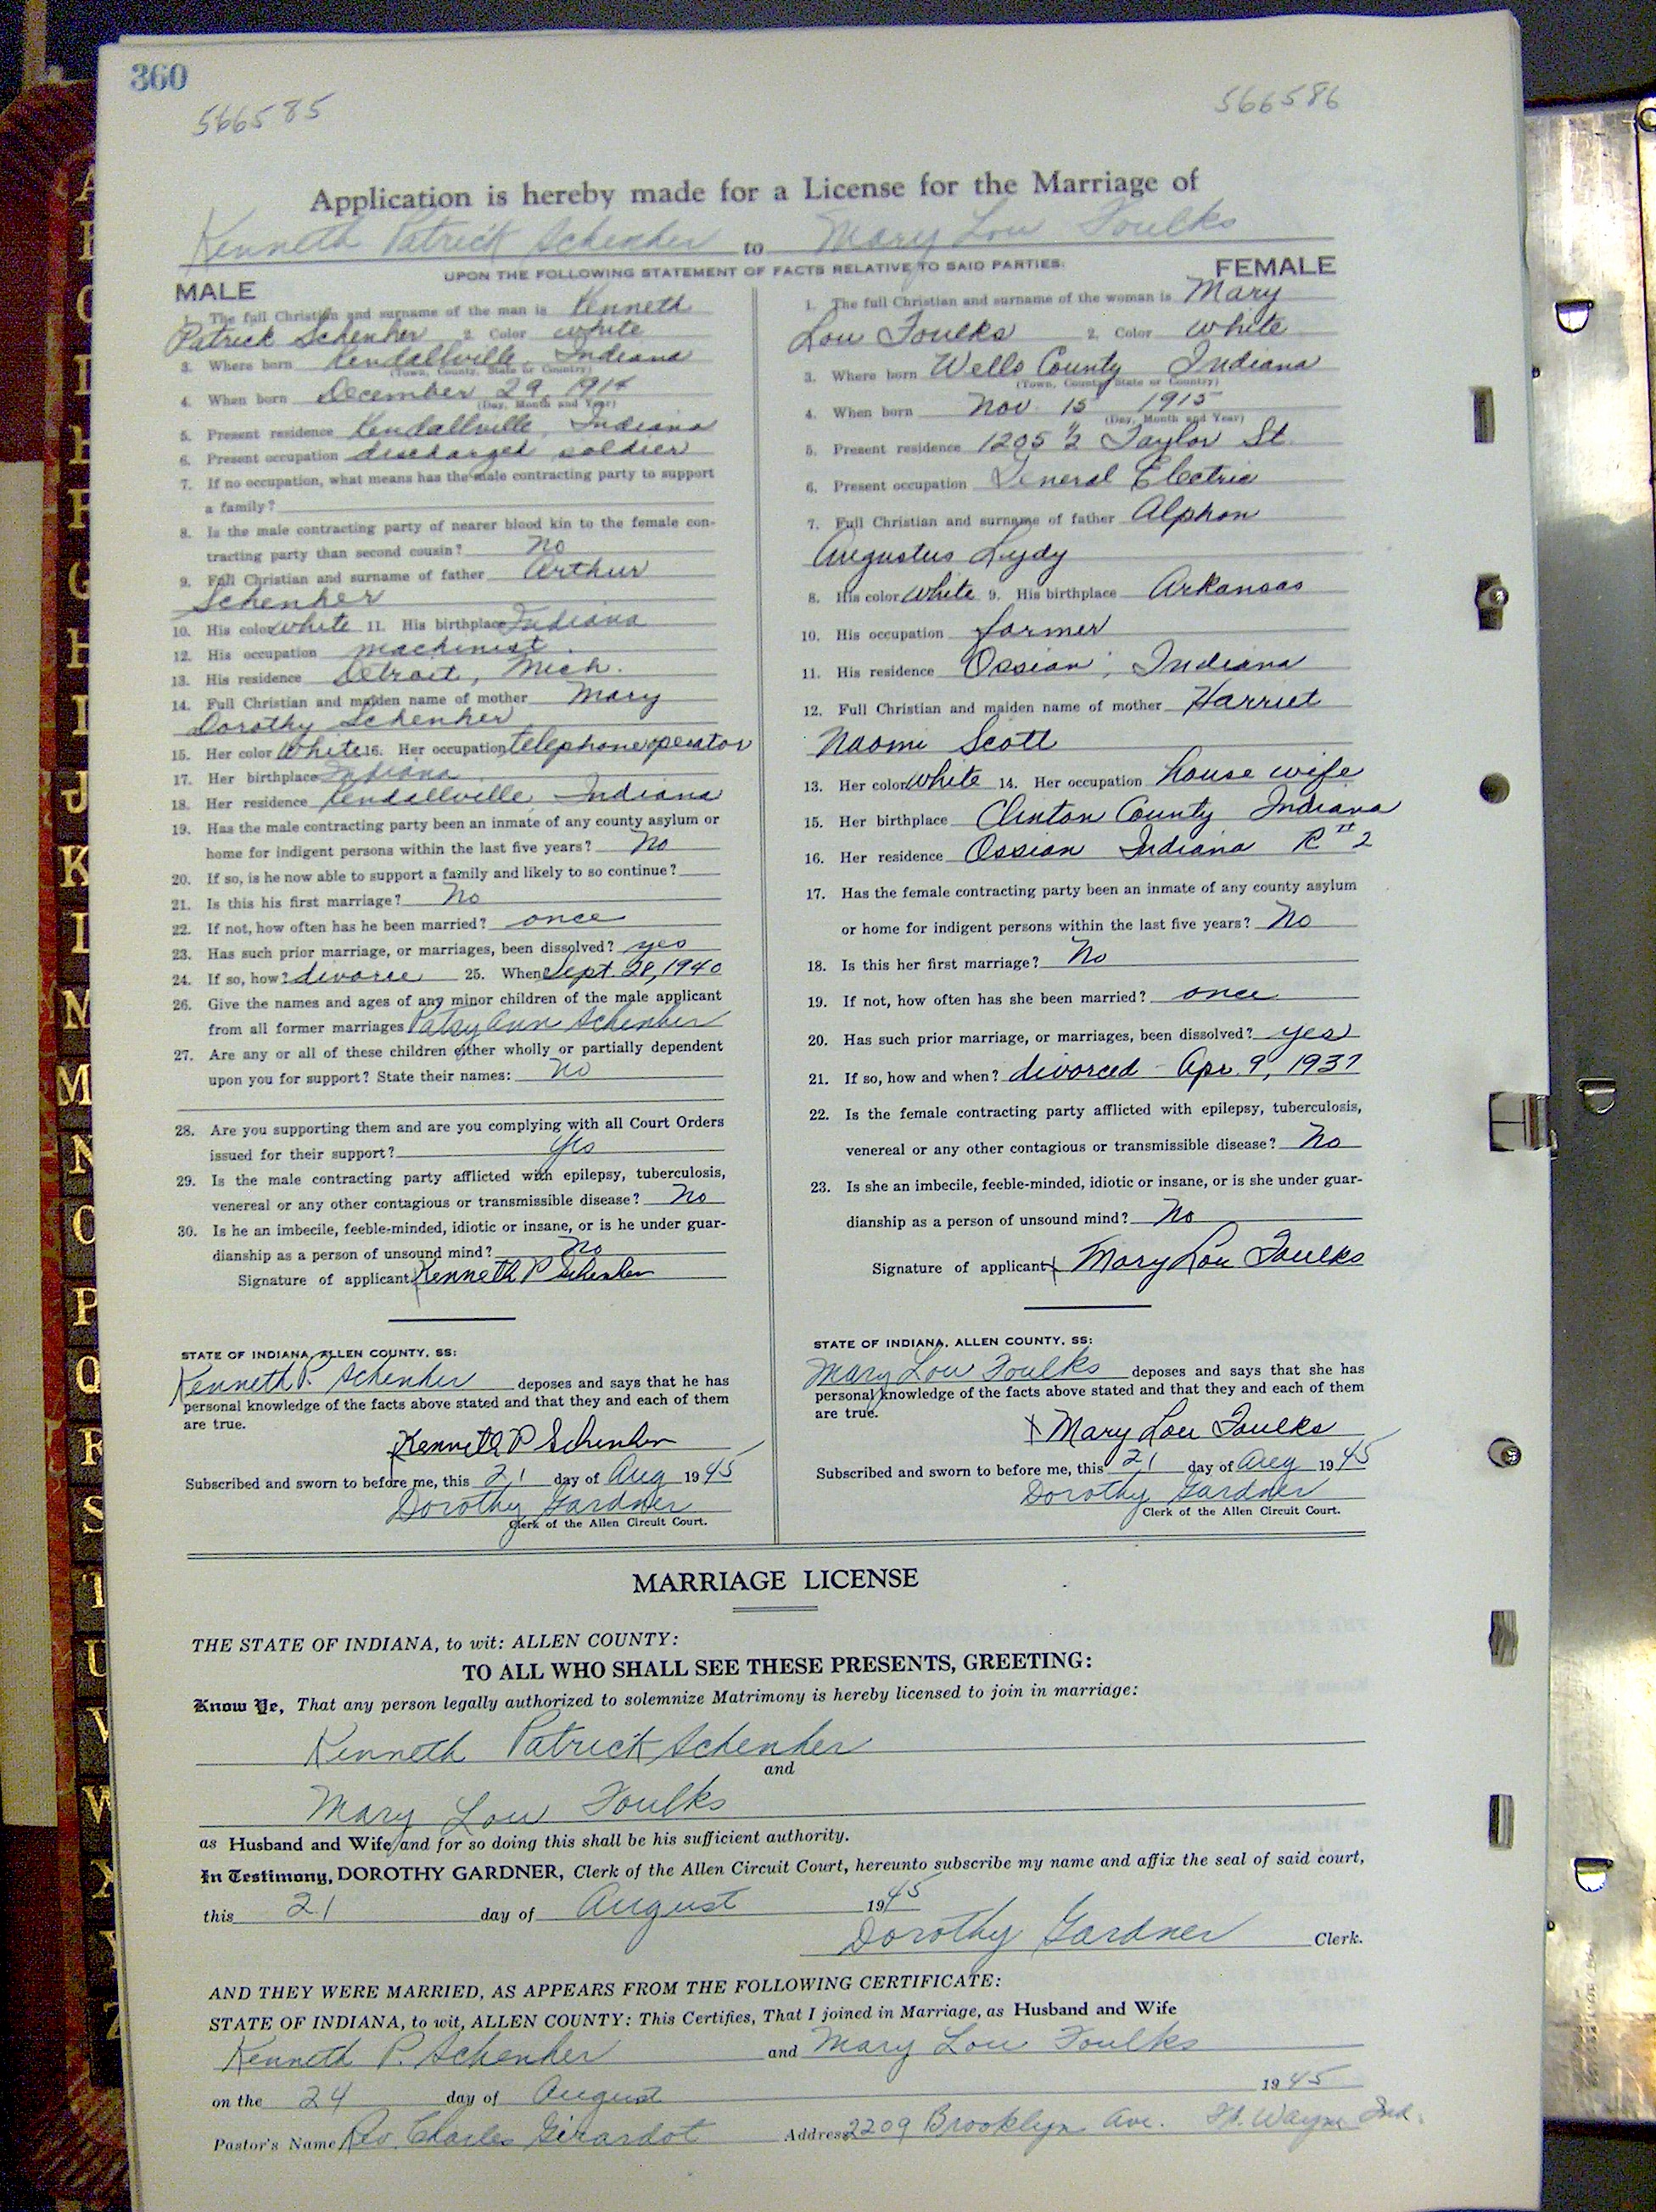 360
566585 566586
Application is hereby made for a License for the Marriage of
Kenneth Patrick Schenher to Mary Lou Foulks
UPON THE FOLLOWING STATEMENT OF FACTS RELATIVE TO SAID PARTIES:
MALE
1. The full Christian and surname of the man is Kenneth
Patrick Schenher 2. Color white
3. Where born Kendallville, Indiana
(Town, County, State or Country)
4. When born December 29, 1914
(Day, Month and Year)
5. Present residence Kendallville, Indiana
6. Present occupation discharged soldier
7. If no occupation, what means has the male contracting party to support
a family?
8. Is the male contracting party of nearer blood kin to the female con-
tracting party than second cousin? No
9. Full Christian and surname of father Arthur
Schenher
10. His color white 11. His birthplace Indiana
12. His occupation machinist
13. His residence Detroit, Mich.
14. Full Christian and maiden name of mother Mary
Dorothy Schenher
15. Her color White 16. Her occupation telephone operator
17. Her birthplace Indiana
18. Her residence Kendallville, Indiana
19. Has the male contracting party been an inmate of any county asylum or
home for indigent persons within the last five years? No
20. If so, is he now able to support a family and likely to so continue?
21. Is this his first marriage? No
22. If not, how often has he been married? once
23. Has such prior marriage, or marriages, been dissolved? yes
24. If so, how? divorce 25. When Sept. 28, 1940
26. Give the names and ages of any minor children of the male applicant
from all former marriages Patsy Ann Schenher
27. Are any or all of these children either wholly or partially dependent
upon you for support? State their names: No
28. Are you supporting them and are you complying with all Court Orders
issued for their support? Yes
29. Is the male contracting party afflicted with epilepsy, tuberculosis,
venereal or any other contagious or transmissible disease? No
30. Is he an imbecile, feeble-minded, idiotic or insane, or is he under guar-
dianship as a person of unsound mind? No
Signature of applicant Kenneth P Schenher
STATE OF INDIANA, ALLEN COUNTY, SS:
Kenneth P. Schenher deposes and says that he has
personal knowledge of the facts above stated and that they and each of them
are true.
Kenneth P Schenher
Subscribed and sworn to before me, this 21 day of Aug 1945
Dorothy Gardner
Clerk of the Allen Circuit Court.
FEMALE
1. The full Christian and surname of the woman is Mary
Lou Foulks 2. Color White
3. Where born Wells County Indiana
(Town, County, State or Country)
4. When born Nov 15 1915
(Day, Month and Year)
5. Present residence 1205 1/2 Taylor St.
6. Present occupation General Electric
7. Full Christian and surname of father Alphon
Augustus Lydy
8. His color White 9. His birthplace Arkansas
10. His occupation farmer
11. His residence Ossian, Indiana
12. Full Christian and maiden name of mother Harriet
Naomi Scott
13. Her color White 14. Her occupation house wife
15. Her birthplace Clinton County Indiana
16. Her residence Ossian Indiana R # 2
17. Has the female contracting party been an inmate of any county asylum
or home for indigent persons within the last five years? No
18. Is this her first marriage? No
19. If not, how often has she been married? once
20. Has such prior marriage, or marriages, been dissolved? yes
21. If so, how and when? divorced - Apr. 9, 1937
22. Is the female contracting party afflicted with epilepsy, tuberculosis,
venereal or any other contagious or transmissible disease? No
23. Is she an imbecile, feeble-minded, idiotic or insane, or is she under guar-
dianship as a person of unsound mind? No
Signature of applicant x Mary Lou Foulks
STATE OF INDIANA, ALLEN COUNTY, SS:
Mary Lou Foulks deposes and says that she has
personal knowledge of the facts above stated and that they and each of them
are true.
x Mary Lou Foulks
Subscribed and sworn to before me, this 21 day of Aug 1945
Dorothy Gardner
Clerk of the Allen Circuit Court.
MARRIAGE LICENSE
THE STATE OF INDIANA, to wit: ALLEN COUNTY:
TO ALL WHO SHALL SEE THESE PRESENTS, GREETING:
Know Ye, That any person legally authorized to solemnize Matrimony is hereby licensed to join in marriage:
Kenneth Patrick Schenher
and
Mary Lou Foulks
as Husband and Wife and for so doing this shall be his sufficient authority.
In Testimony, DOROTHY GARDNER, Clerk of the Allen Circuit Court, hereunto subscribe my name and affix the seal of said court,
this 21 day of August 1945
Dorothy Gardner Clerk.
AND THEY WERE MARRIED, AS APPEARS FROM THE FOLLOWING CERTIFICATE:
STATE OF INDIANA, to wit, ALLEN COUNTY: This Certifies, That I joined in Marriage, as Husband and Wife
Kenneth P. Schenher and Mary Lou Foulks
on the 24 day of August 1945
Pastor's Name Rev. Charles Girardot Address 2209 Brooklyn Ave. Ft. Wayne Ind.